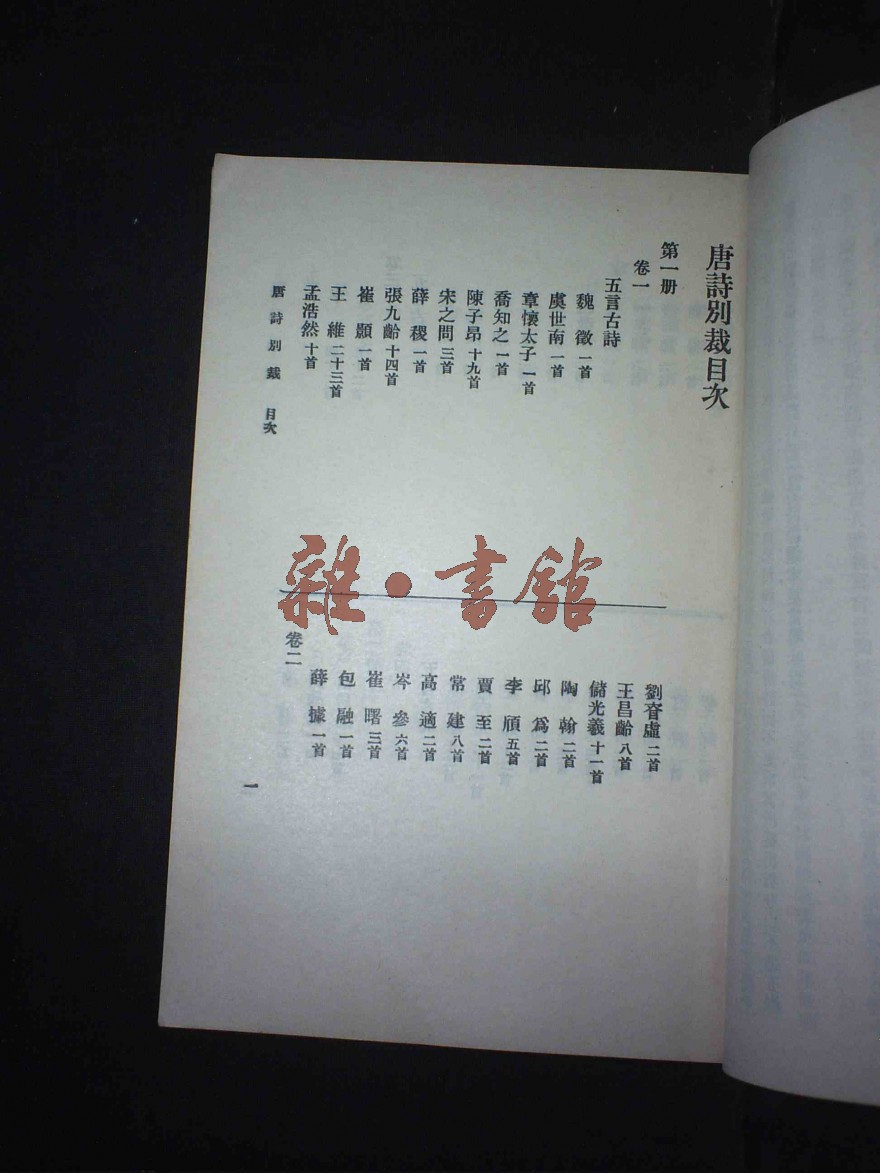 唐詩別裁目次
第一册
卷一
五言古詩
魏　徵 一首
虞世南 一首
章懷太子 一首
喬知之 一首
陳子昂 十九首
宋之問 三首
薛　稷 一首
張九齡 十四首
崔　顥 一首
王　維 二十三首
孟浩然 十首
劉眘虛 二首
王昌齡 八首
儲光羲 十一首
陶　翰 二首
邱　爲 二首
李　頎 五首
賈　至 二首
常　建 八首
高　適 二首
岑　參 六首
崔　曙 三首
包　融 一首
薛　據 一首
卷二
唐詩別裁　目次
一
雜·書館